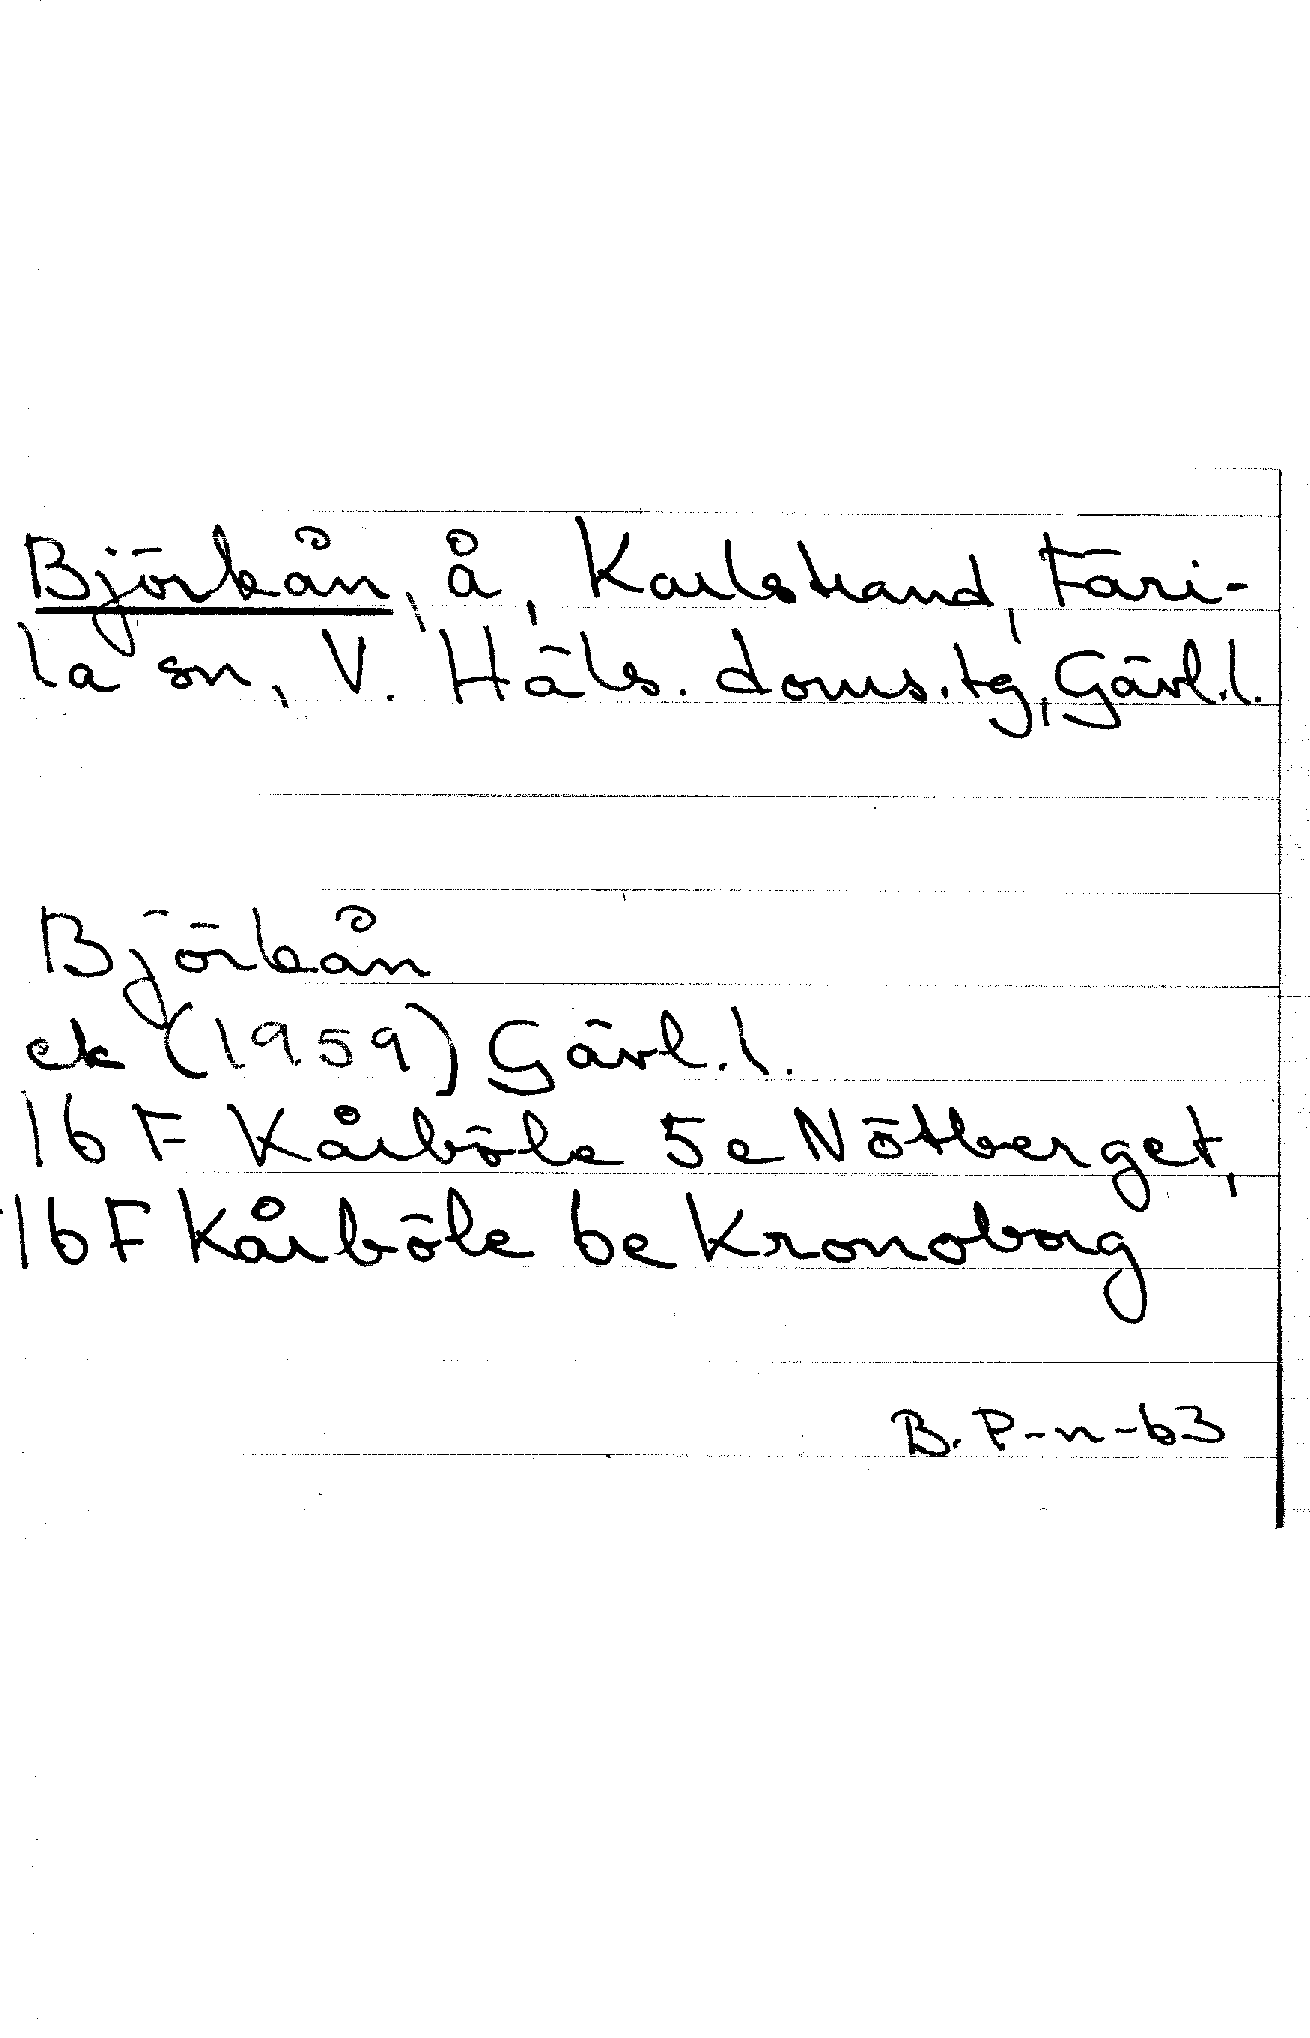 Björkån, å, Karlstrand, Färi-
la sn, V. Häls. doms.tg, Gävl.l.
Björkån
ek (1959) Gävl.l.
16 F Kårböle 5e Nötberget,
16 F Kårböle 6e Kronoborg
B. P-n-63